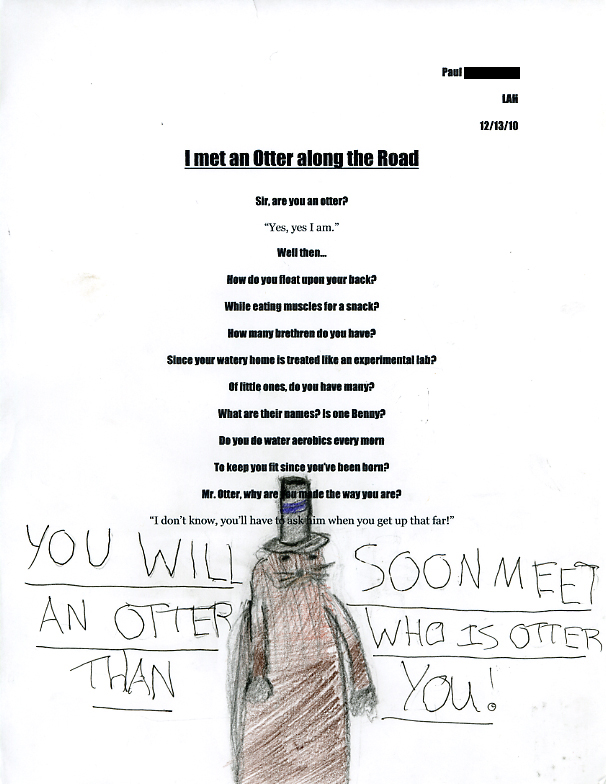 Paul
LAH
12/13/10
I met an Otter along the Road
Sir, are you an otter?
“Yes, yes I am.”
Well then...
How do you float upon your back?
While eating muscles for a snack?
How many brethren do you have?
Since your watery home is treated like an experimental lab?
Of little ones, do you have many?
What are their names? Is one Benny?
Do you do water aerobics every morn
To keep you fit since you've been born?
Mr. Otter, why are you made the way you are?
“I don’t know, you’ll have to ask him when you get up that far!”
YOU WILL SOON MEET
AN OTTER WHO IS OTTER
THAN YOU!